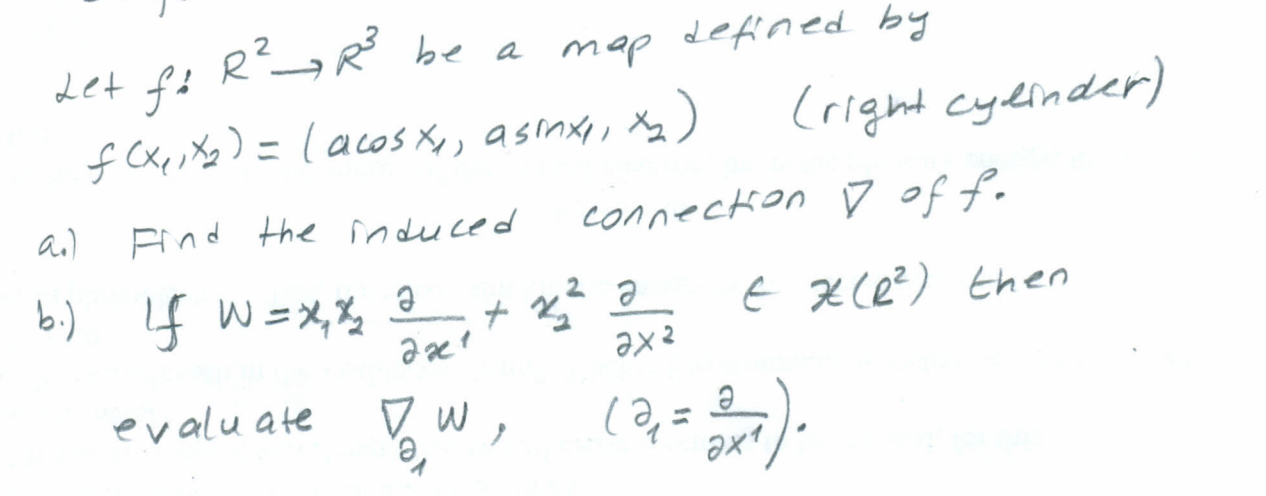 Let f: R² → R³ be a map defined by
f(x₁,x₂) = (acos x₁, asinx₁, x₂) (right cylinder)
a.) Find the induced connection ∇ of f.
b.) If W = x₁x₂ ∂/∂x¹ + x₂² ∂/∂x² ∈ χ(R²) then
evaluate ∇_∂₁ W, (∂₁ = ∂/∂x¹).